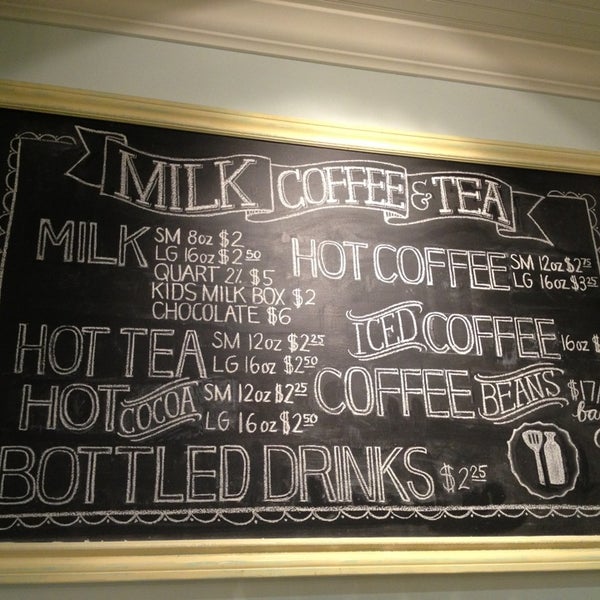 MILK COFFEE & TEA
MILK SM 8oz $2
LG 16oz $2.50
QUART 2% $5
KIDS MILK BOX $2
CHOCOLATE $6
HOT COFFEE SM 12oz $2.75
LG 16oz $3.25
ICED COFFEE 16oz $
HOT TEA SM 12oz $2.25
LG 16oz $2.50
COFFEE BEANS $17/
HOT COCOA SM 12oz $2.25
LG 16oz $2.50
BOTTLED DRINKS $2.25